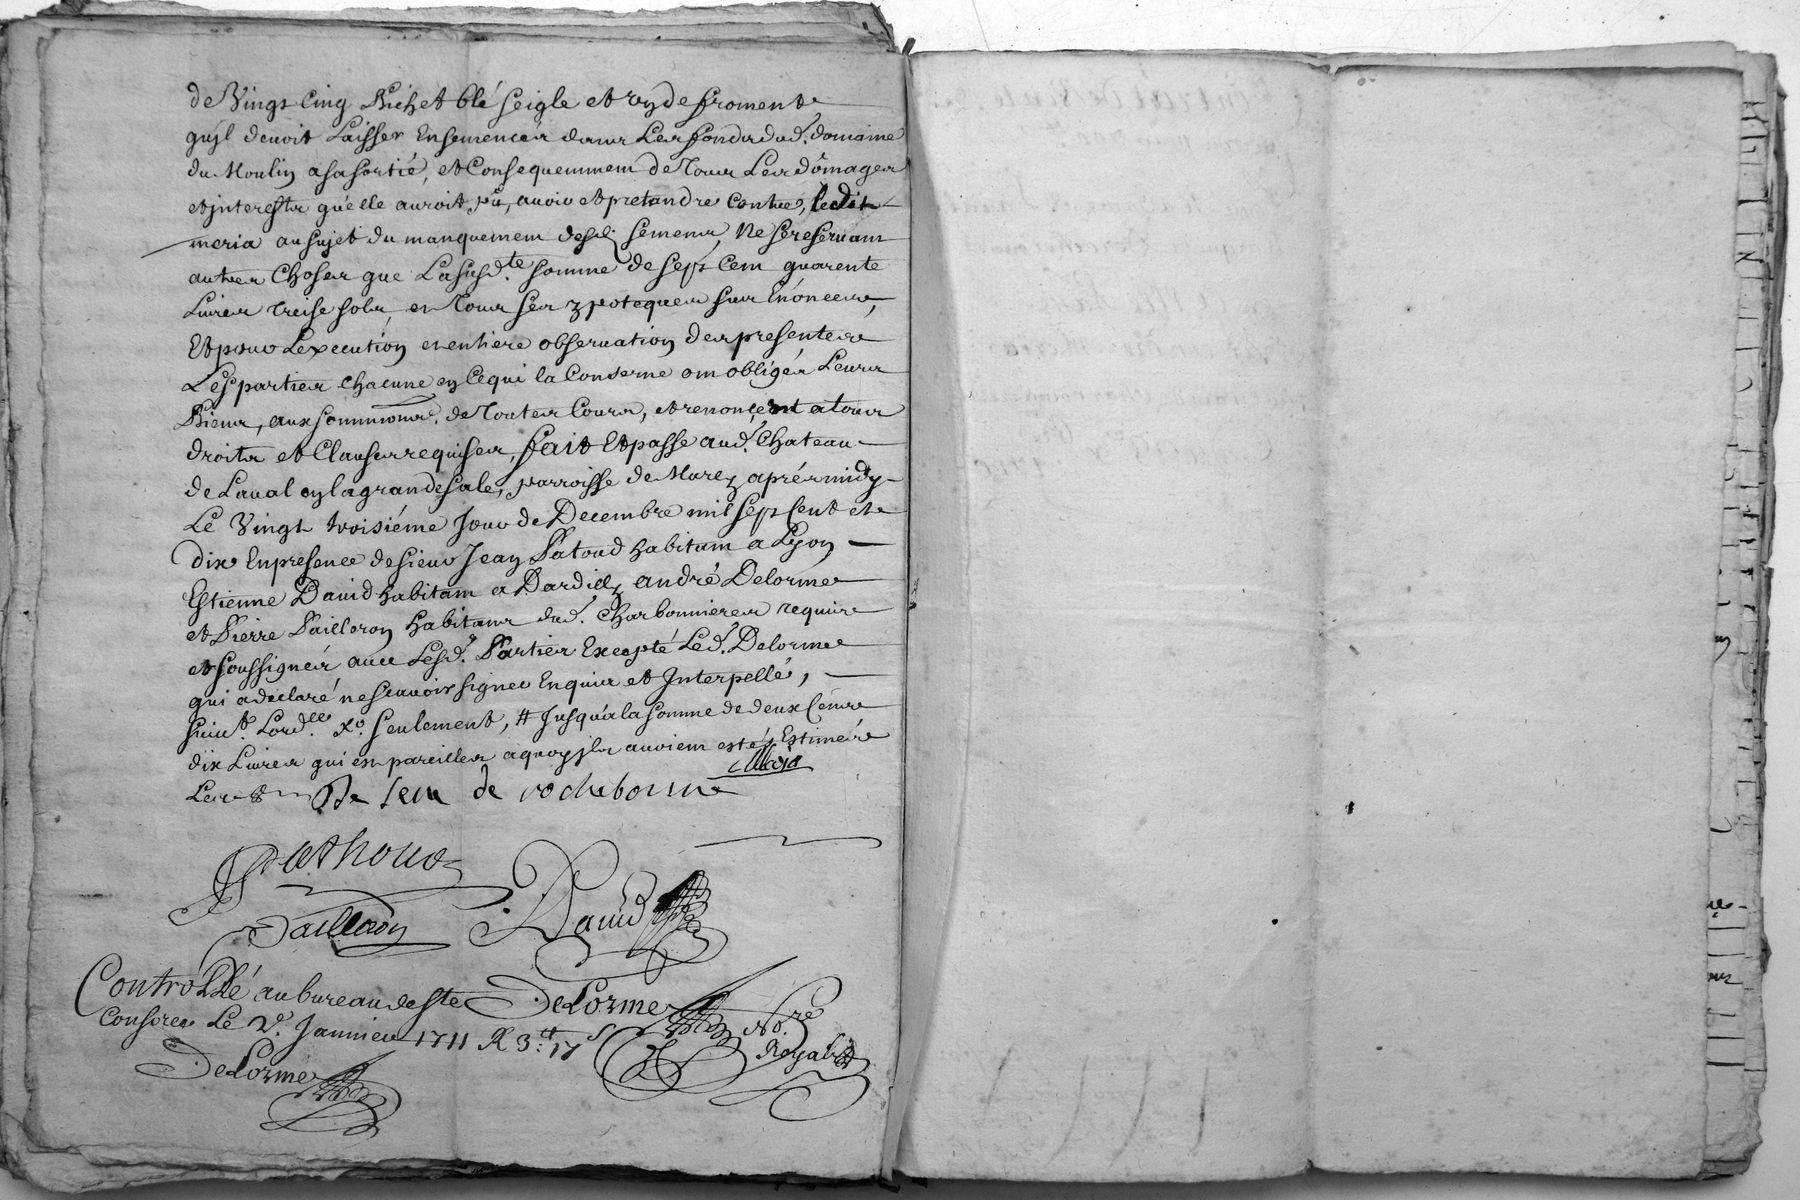 de Vingt Cinq Bichet blé seigle et un de froment
quyl devoit Laisser Ensemencés dans Les fonds dud. domaine
du Moulin a sa sortié, et Consequemment de Tous Les domages
et interestz qu'elle auroit pû, avoir et pretandre Contre, ledit
meria au sujet du manquement desd. semens, Ne se reservant
autres Choses que La susd.te somme de sept Cent quarente
Livres treise sols, et Tous ses ypoteques sus Enoncees,
Et pour Lexecution et entiere observation des presentes
Les parties chacune en Ce qui la Conserne ont obligés Leurs
Biens, aux soumissions de Toutes Cours, et renoncent a tous
droits et Clauses requises, fait Et passe aud. Chateau
de Laval en la grande sale, parroisse de Marcy aprés midy
Le Vingt troisiéme Jour de Decembre mil sept Cent et
dix En presence de sieur Jean Patoud habitant a Lyon
Estienne David habitant a Dardilly andré Delorme
et Pierre Pailloron habitans dud. Charbonnieres requis
et soussignés avec Lesd. Parties Excepté Led. Delorme
qui a declaré ne scavoir signer Enquis et Interpellé,
seulement, # Jusqu'a la somme de deux Cents
dix Livres qui est pareilles a quoy ils avoient estés Estimés
Meria
De Seve de rochebonne
Pathoud
Pailloron
David
Controllé au bureau de Ste
Consorce Le 2e. Janvier 1711 R 3tt: 17s
DeLorme
DeLorme No.re
Royal